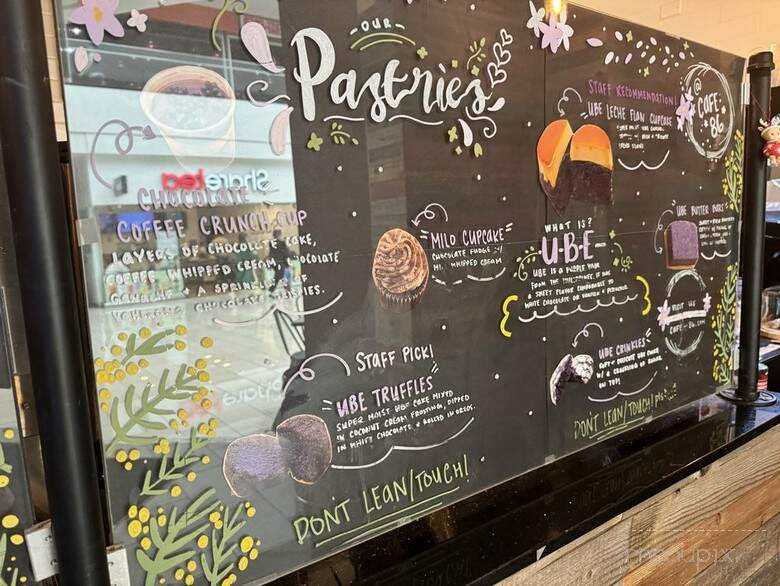 OUR
Pastries
CHOCOLATE
COFFEE CRUNCH CUP
LAYERS OF CHOCOLATE CAKE,
COFFEE WHIPPED CREAM, CHOCOLATE
GANACHE & A SPRINKLE OF
CHOCOLATE
MILO CUPCAKE
CHOCOLATE FUDGE
WHIPPED CREAM
STAFF PICK!
UBE TRUFFLES
SUPER MOIST UBE CAKE MIXED
IN COCONUT CREAM FROSTING, DIPPED
IN WHITE CHOCOLATE & ROLLED IN OREOS.
DON'T LEAN/TOUCH!
STAFF RECOMMENDATION!
UBE LECHE FLAN CUPCAKE
@CAFE-
86
WHAT IS?
U-B-E-
UBE IS A PURPLE YAM
FROM THE PHILIPPINES. IT HAS
A SWEET FLAVOR COMPARABLE TO
WHITE CHOCOLATE OR VANILLA & PISTACHIO.
UBE BUTTER BARS
VISIT US
CAFE-86.COM
UBE CRINKLES
W/ A COATING OF SUGAR
ON TOP!
DON'T LEAN/TOUCH! pls
Sharetea